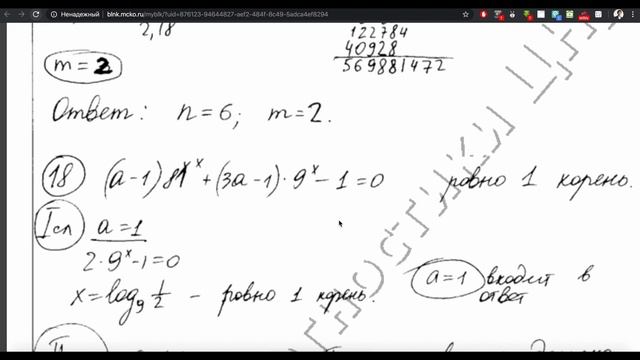 Ненадежный | blnk.mcko.ru/myblk/?uid=876123-94644827-aef2-484f-8c49-5adca4ef8294
2,18
122784
40928
569881472
m=2
Ответ: n=6; m=2.
18 (a-1)81^x + (3a-1)·9^x - 1 = 0 ровно 1 корень.
I сл a=1
2·9^x-1=0
x=log₉ 1/2 - ровно 1 корень. a=1 входит в ответ
II